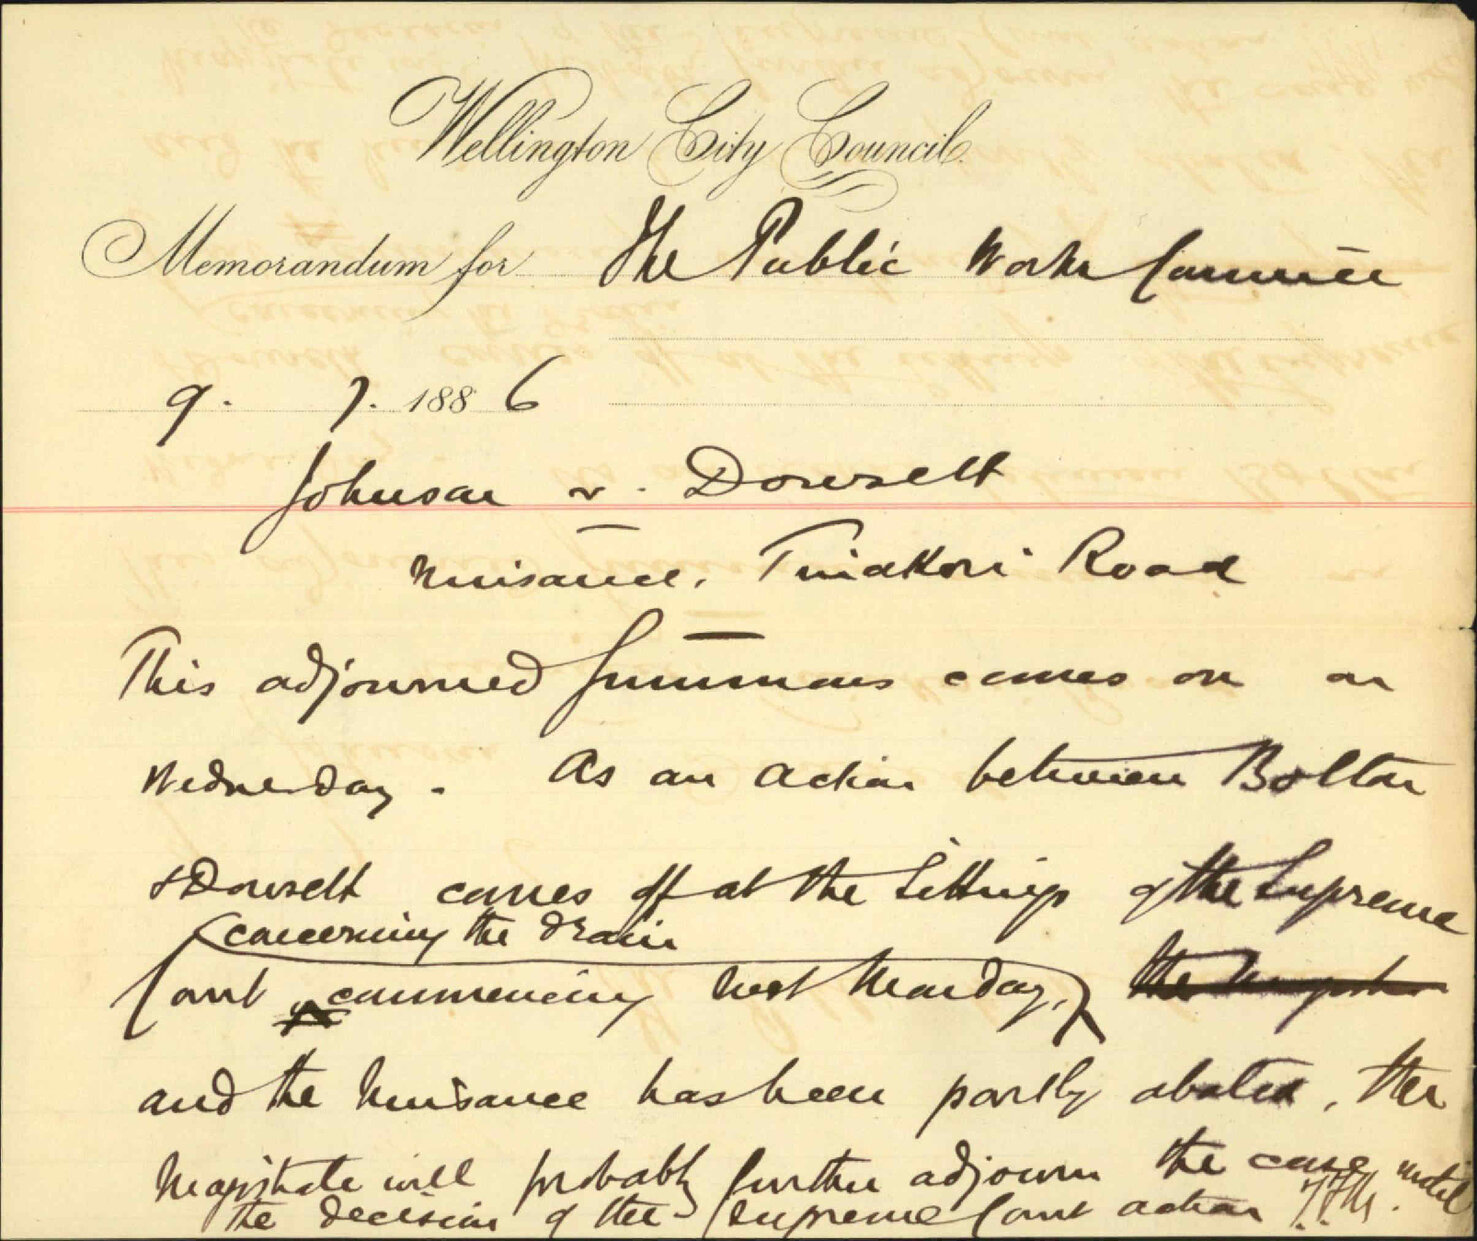 Wellington City Council.
Memorandum for The Public Works Committee
9. 7. 1886
Johnson v. Dowsett
Nuisance, Tinakori Road
This adjourned Summons comes on on
Wednesday. As an action between Bolton
& Dowsett comes off at the Sittings of the Supreme
concerning the drain
Court commencing next Monday, the
and the Nuisance has been partly abated, the
Magistrate will probably further adjourn the case until
the decision of the Supreme Court action